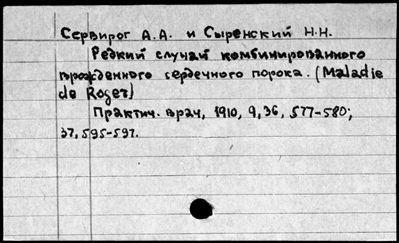 Сервирог А.А. и Сыренский Н.Н.
Редкий случай комбинированного
врожденного сердечного порока. (Maladie
de Roger)
Практич. врач, 1910, 9, 36, 577-580;
37, 595-597.